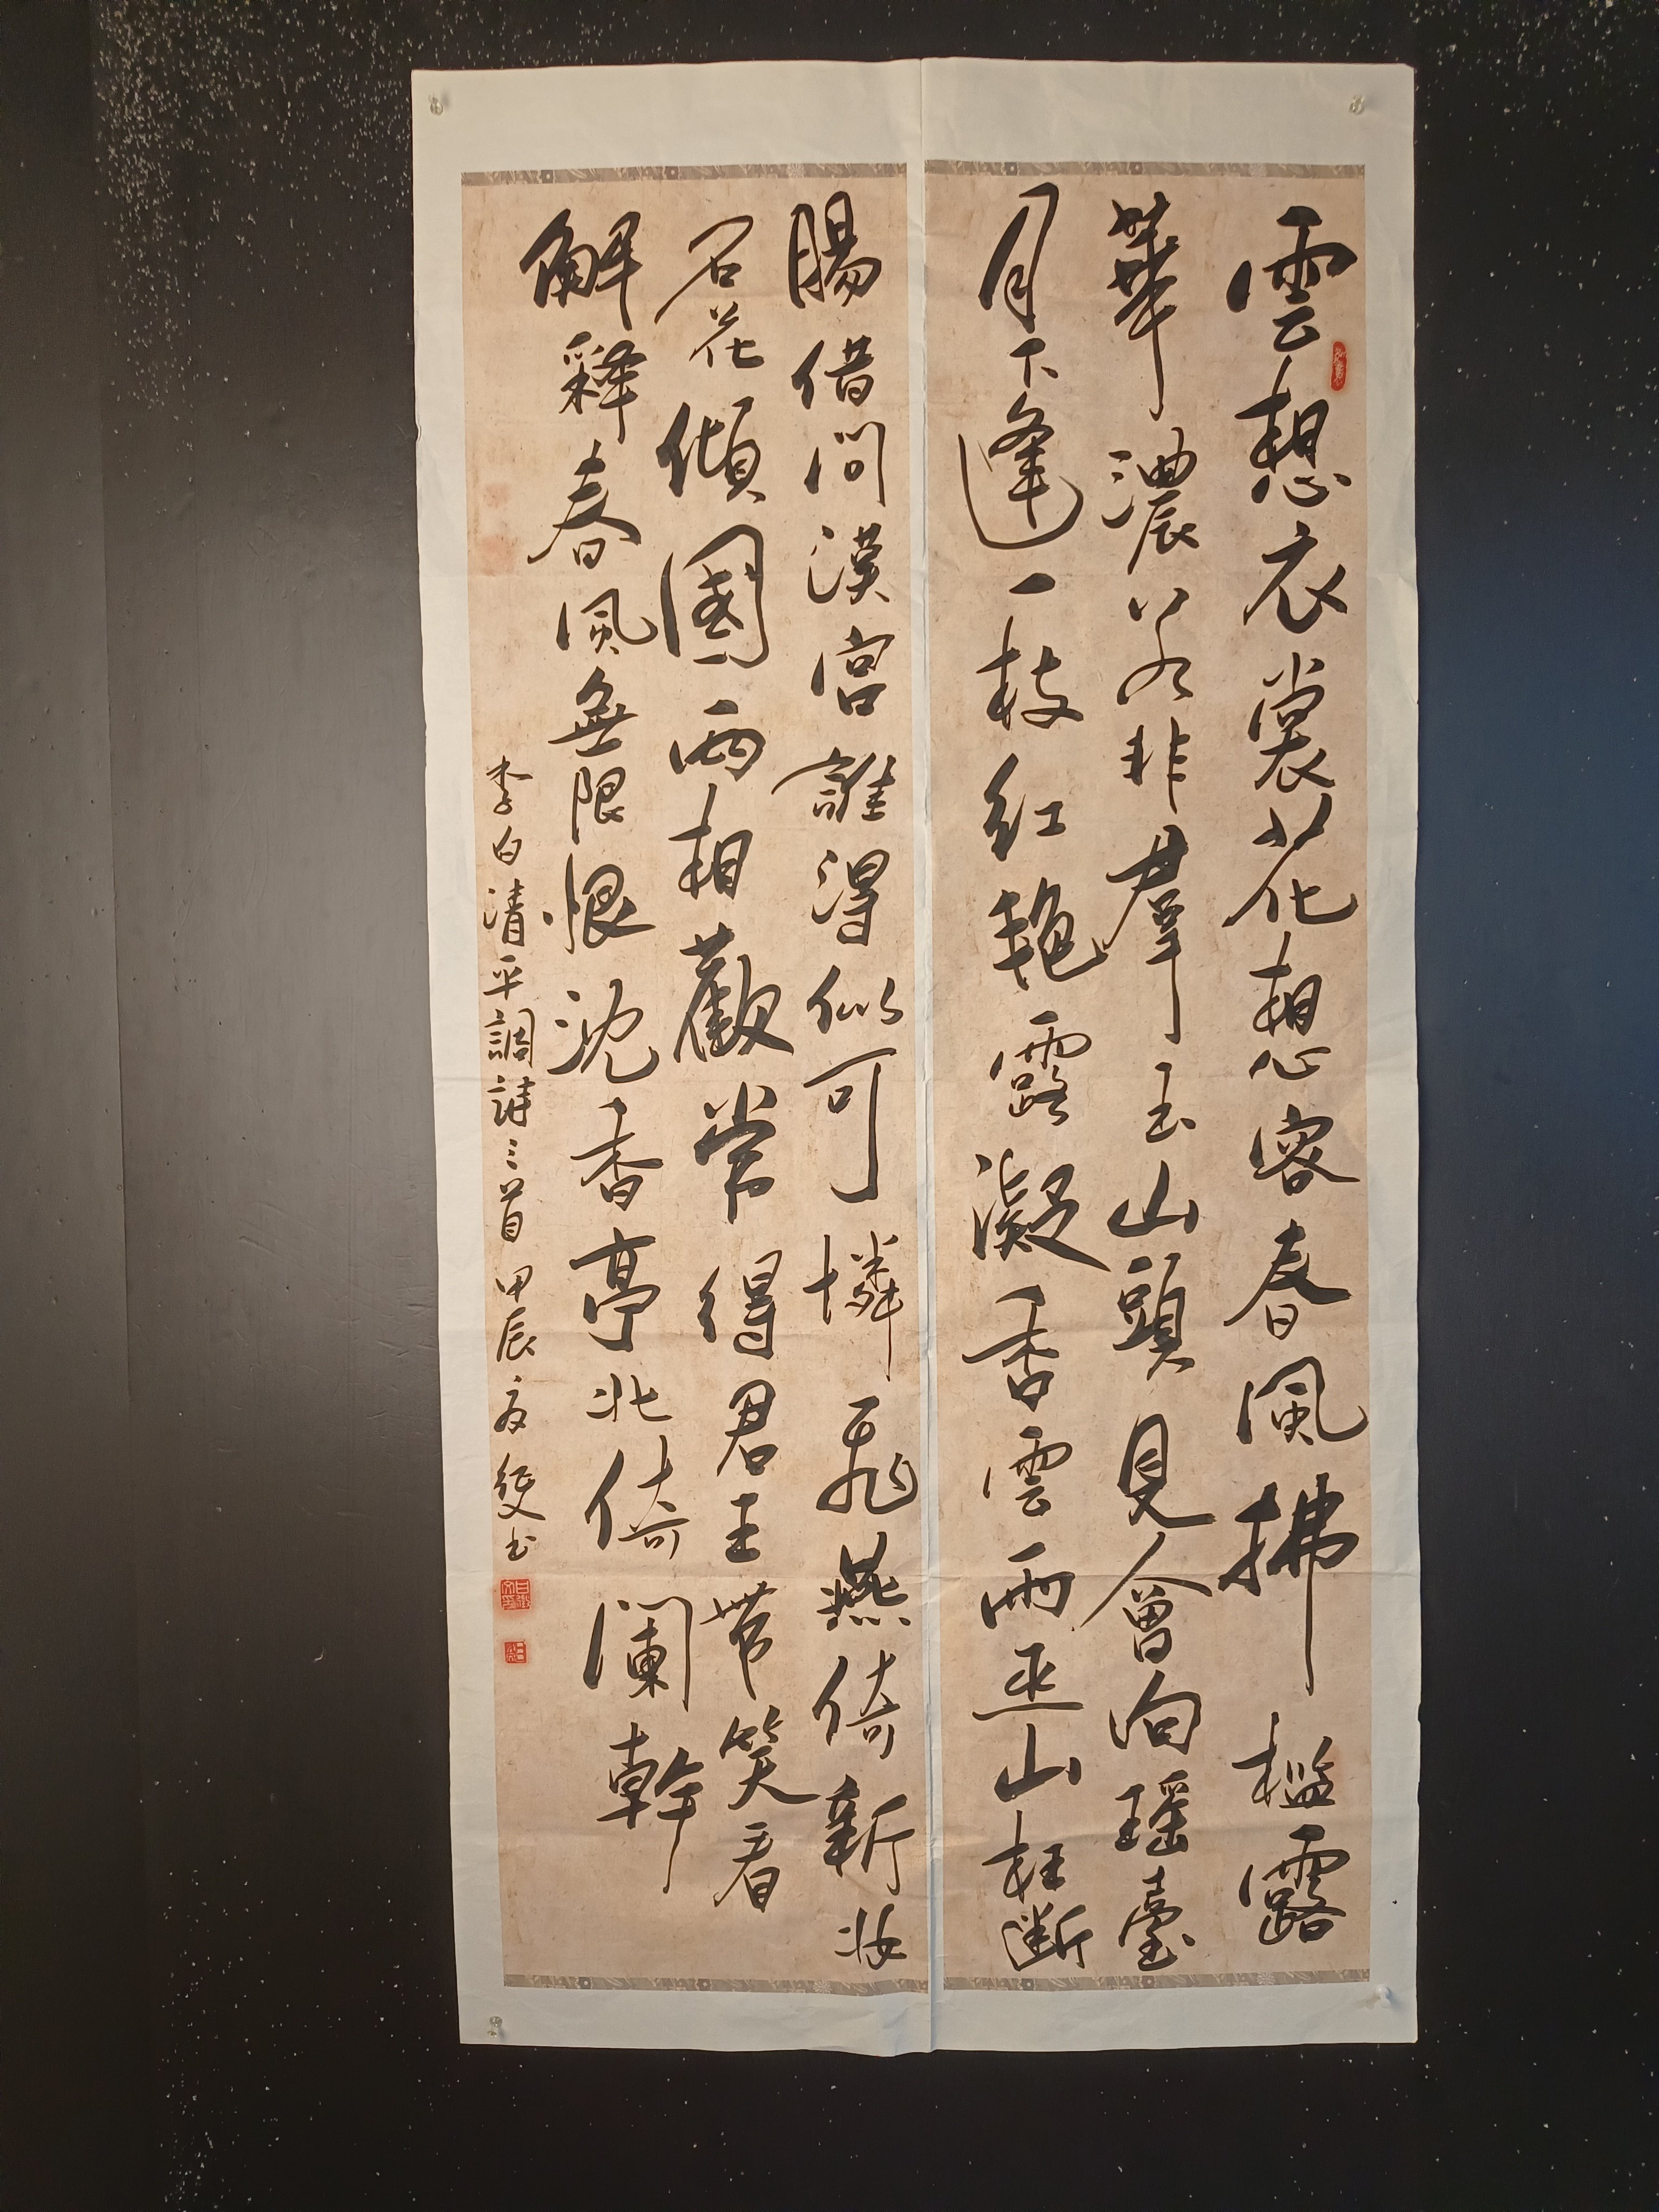 雲想衣裳花想容春風拂檻露
華濃若非羣玉山頭見會向瑶臺
月下逢一枝紅艳露凝香雲雨巫山枉斷
腸借問漢宮誰得似可憐飛燕倚新妝
名花傾國兩相歡常得君王带笑看
解釋春風無限恨沈香亭北倚闌幹
李白清平調詩三首甲辰夏 書